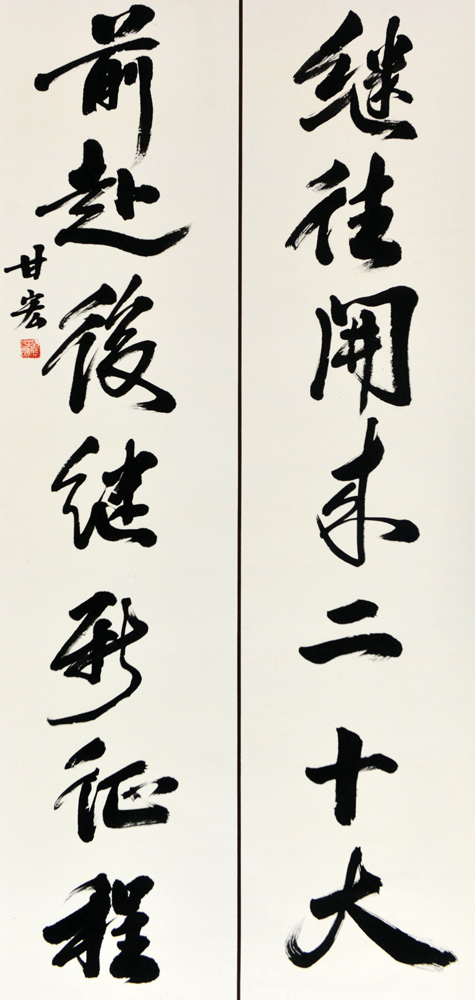 继往開来二十大
前赴後继新征程
甘宏